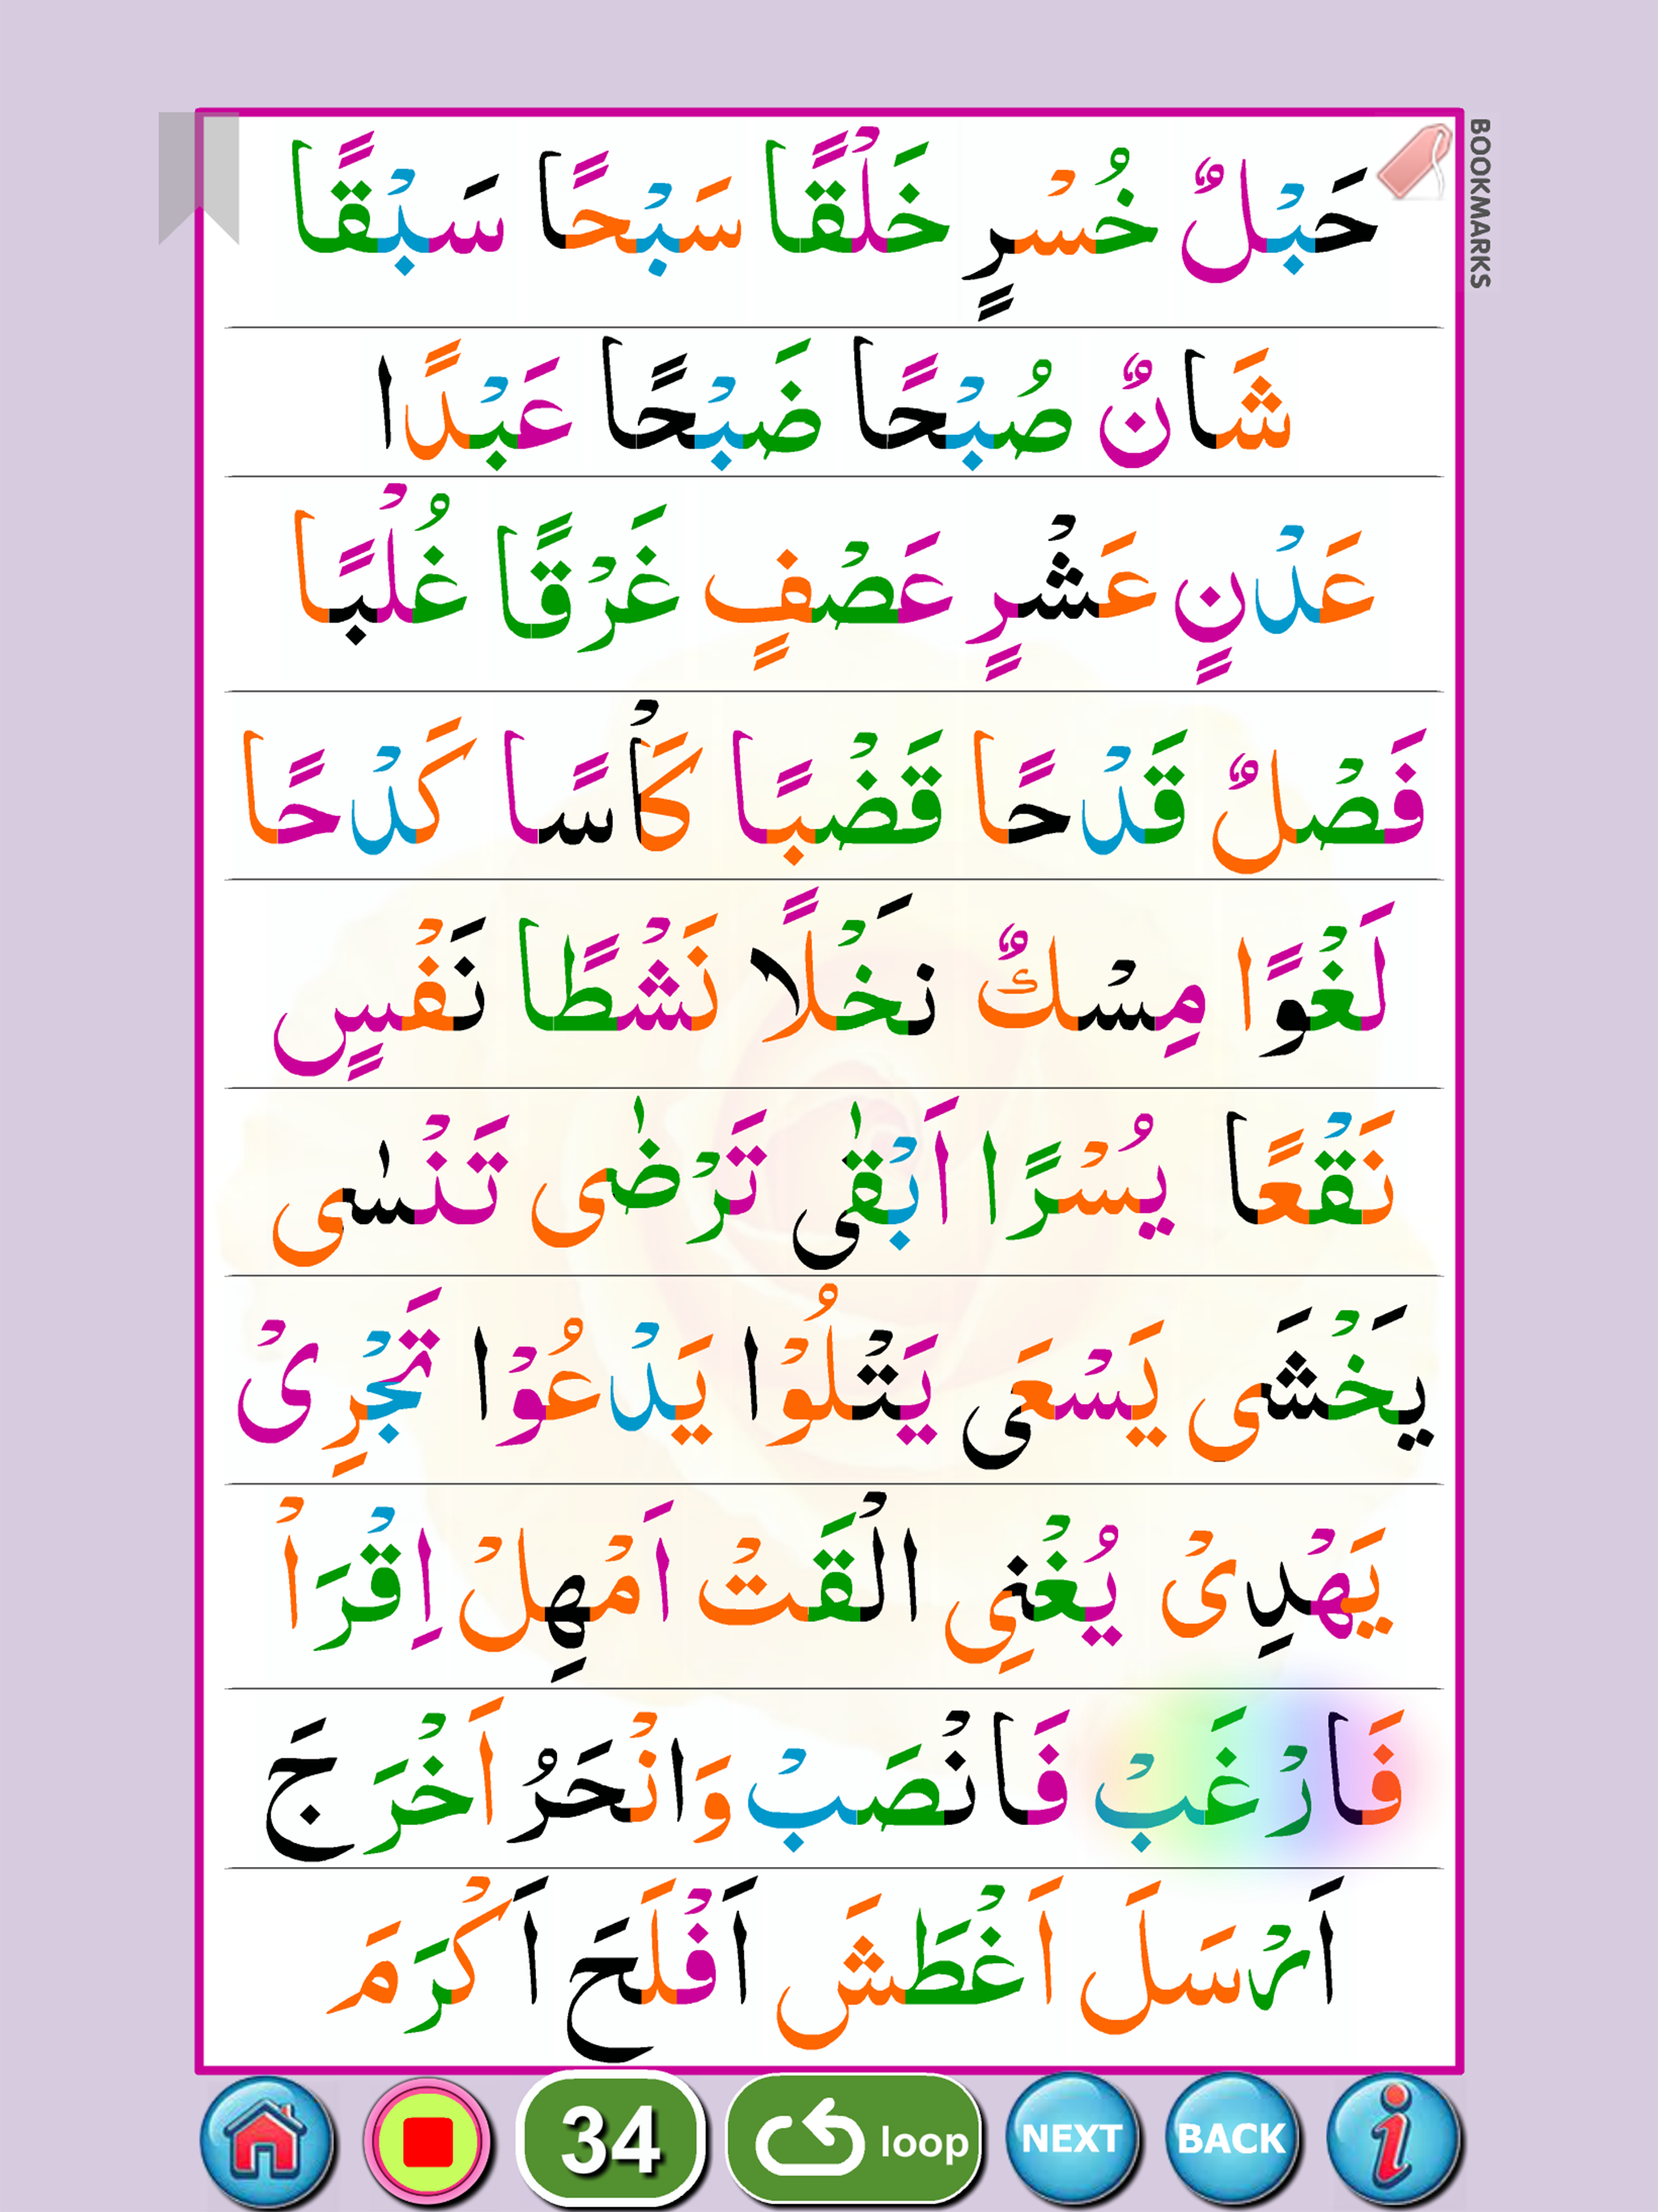 BOOKMARKS
حَبْلٌ خُسْرٍ خَلْقًا سَبْحًا سَبْقًا
شَانٌ صُبْحًا ضَبْحًا عَبْدًا
عَدْنٍ عَشْرٍ عَصْفٍ غَرْقًا غُلْبًا
فَصْلٌ قَدْحًا قَضْبًا كَاْسًا كَدْحًا
لَغْوًا مِسْكٌ نَخْلًا نَشْطًا نَفْسٍ
نَقْعًا يُسْرًا اَبْقٰى تَرْضٰى تَنْسٰى
يَخْشَى يَسْعَى يَتْلُوْا يَدْعُوْا تَجْرِىْ
يَهْدِىْ يُغْنِى الْقَتْ اَمْهِلْ اِقْرَاْ
فَارْغَبْ فَانْصَبْ وَانْحَرْ اَخْرَجَ
اَرْسَلَ اَغْطَشَ اَفْلَحَ اَكْرَمَ
34 loop NEXT BACK i